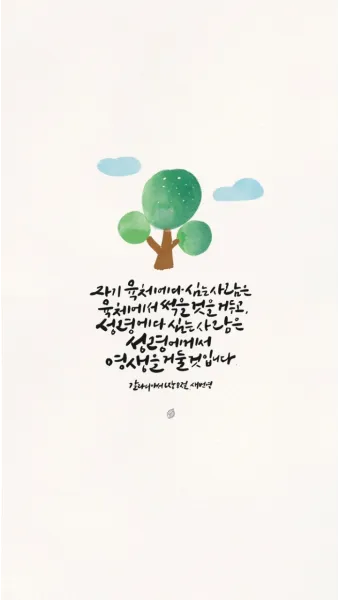 자기 육체에다 심는 사람은
육체에서 썩을 것을 거두고,
성령에다 심는 사람은
성령에게서
영생을 거둘 것입니다
갈라디아서 6장 8절, 새번역